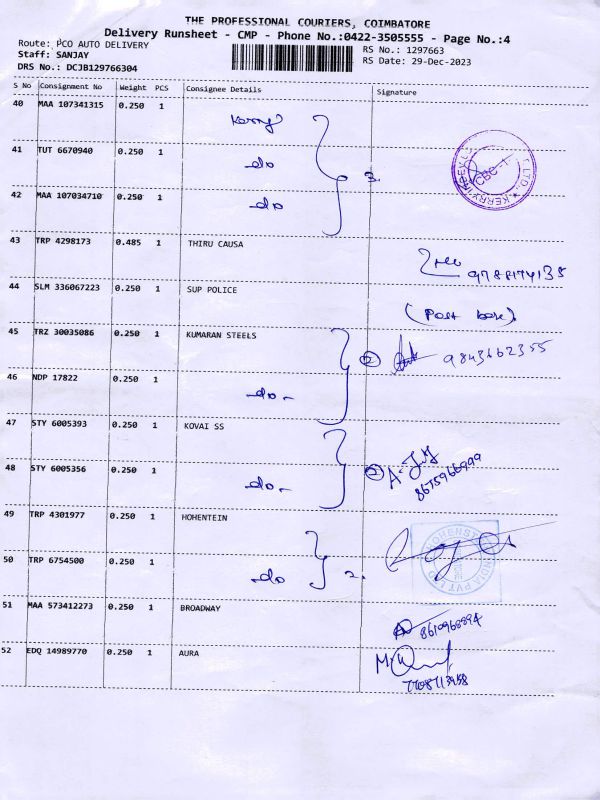 THE PROFESSIONAL COURIERS, COIMBATORE
Delivery Runsheet - CMP - Phone No.:0422-3505555 - Page No.:4
Route: PCO AUTO DELIVERY RS No.: 1297663
Staff: SANJAY RS Date: 29-Dec-2023
DRS No.: DCJB129766304
S No Consignment No Weight PCS Consignee Details Signature
40 MAA 107341315 0.250 1 Kerry
41 TUT 6670940 0.250 1 do 3.
42 MAA 107034710 0.250 1 do
43 TRP 4298173 0.485 1 THIRU CAUSA
44 SLM 336067223 0.250 1 SUP POLICE (Post box).
45 TRZ 30035086 0.250 1 KUMARAN STEELS 2 9843162355
46 NDP 17822 0.250 1 do
47 STY 6005393 0.250 1 KOVAI SS
48 STY 6005356 0.250 1 do 2
49 TRP 4301977 0.250 1 HOHENTEIN
50 TRP 6754500 0.250 1 do 2.
51 MAA 573412273 0.250 1 BROADWAY 8610968894
52 EDQ 14989770 0.250 1 AURA
7708713958